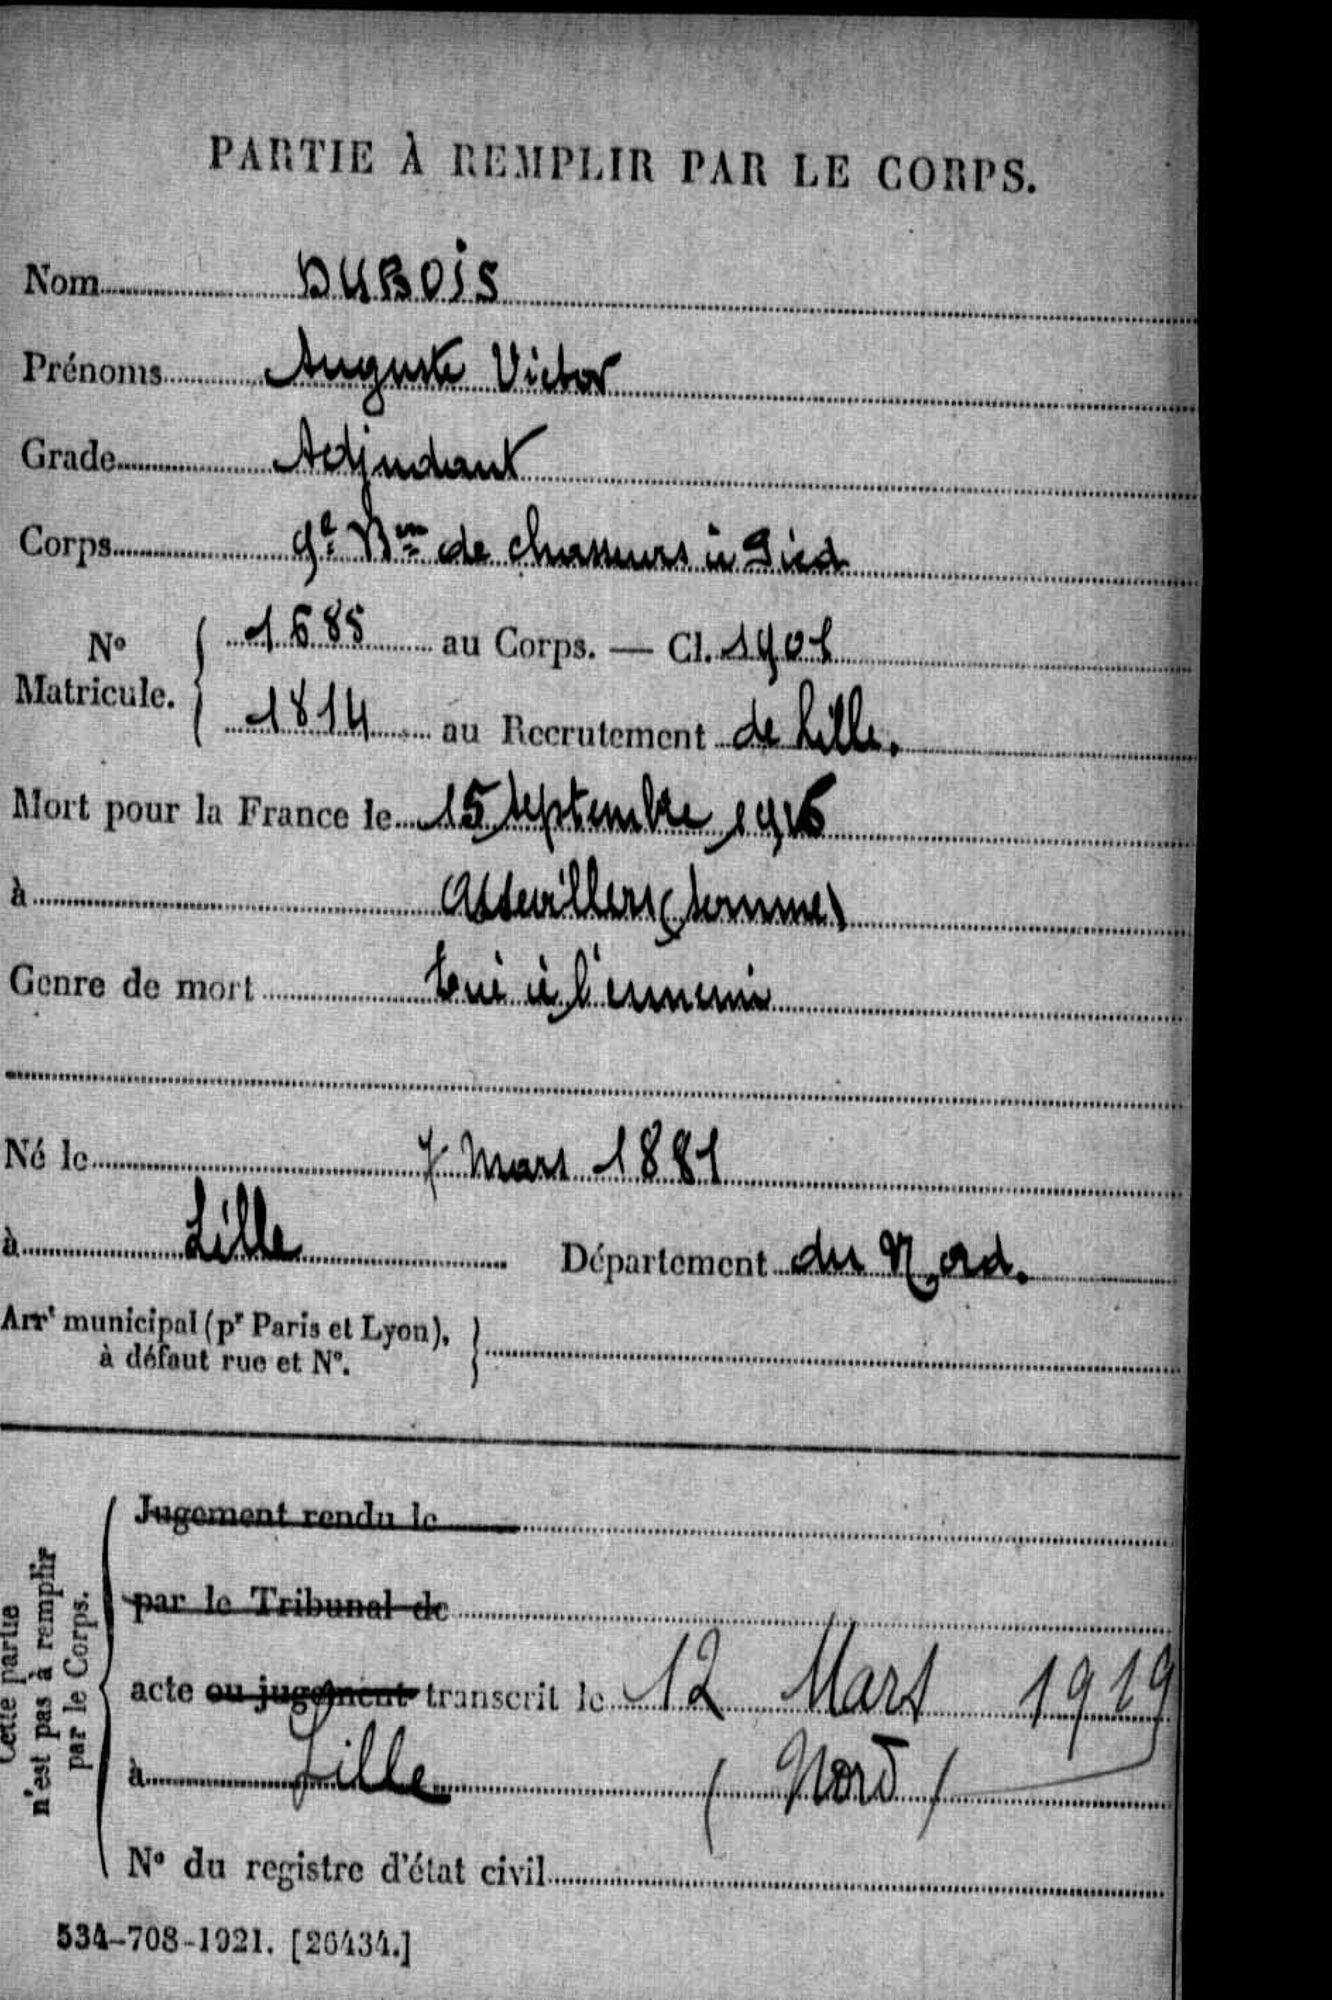 PARTIE À REMPLIR PAR LE CORPS.
Nom DUBOIS
Prénoms Auguste Victor
Grade Adjudant
Corps 9e Bon de chasseurs à Pied
No Matricule. { 1685 au Corps. — Cl. 1901
1814 au Recrutement de Lille.
Mort pour la France le 15 septembre 1916
à Assevillers (Somme)
Genre de mort tué à l'ennemi
Né le 7 Mars 1881
à Lille Département du Nord.
Arrt municipal (pr Paris et Lyon), à défaut rue et No. }
Cette partie n'est pas à remplir par le Corps.
Jugement rendu le
par le Tribunal de
acte ou jugement transcrit le 12 Mars 1919
à Lille (Nord)
No du registre d'état civil
534-708-1921. [26434.]